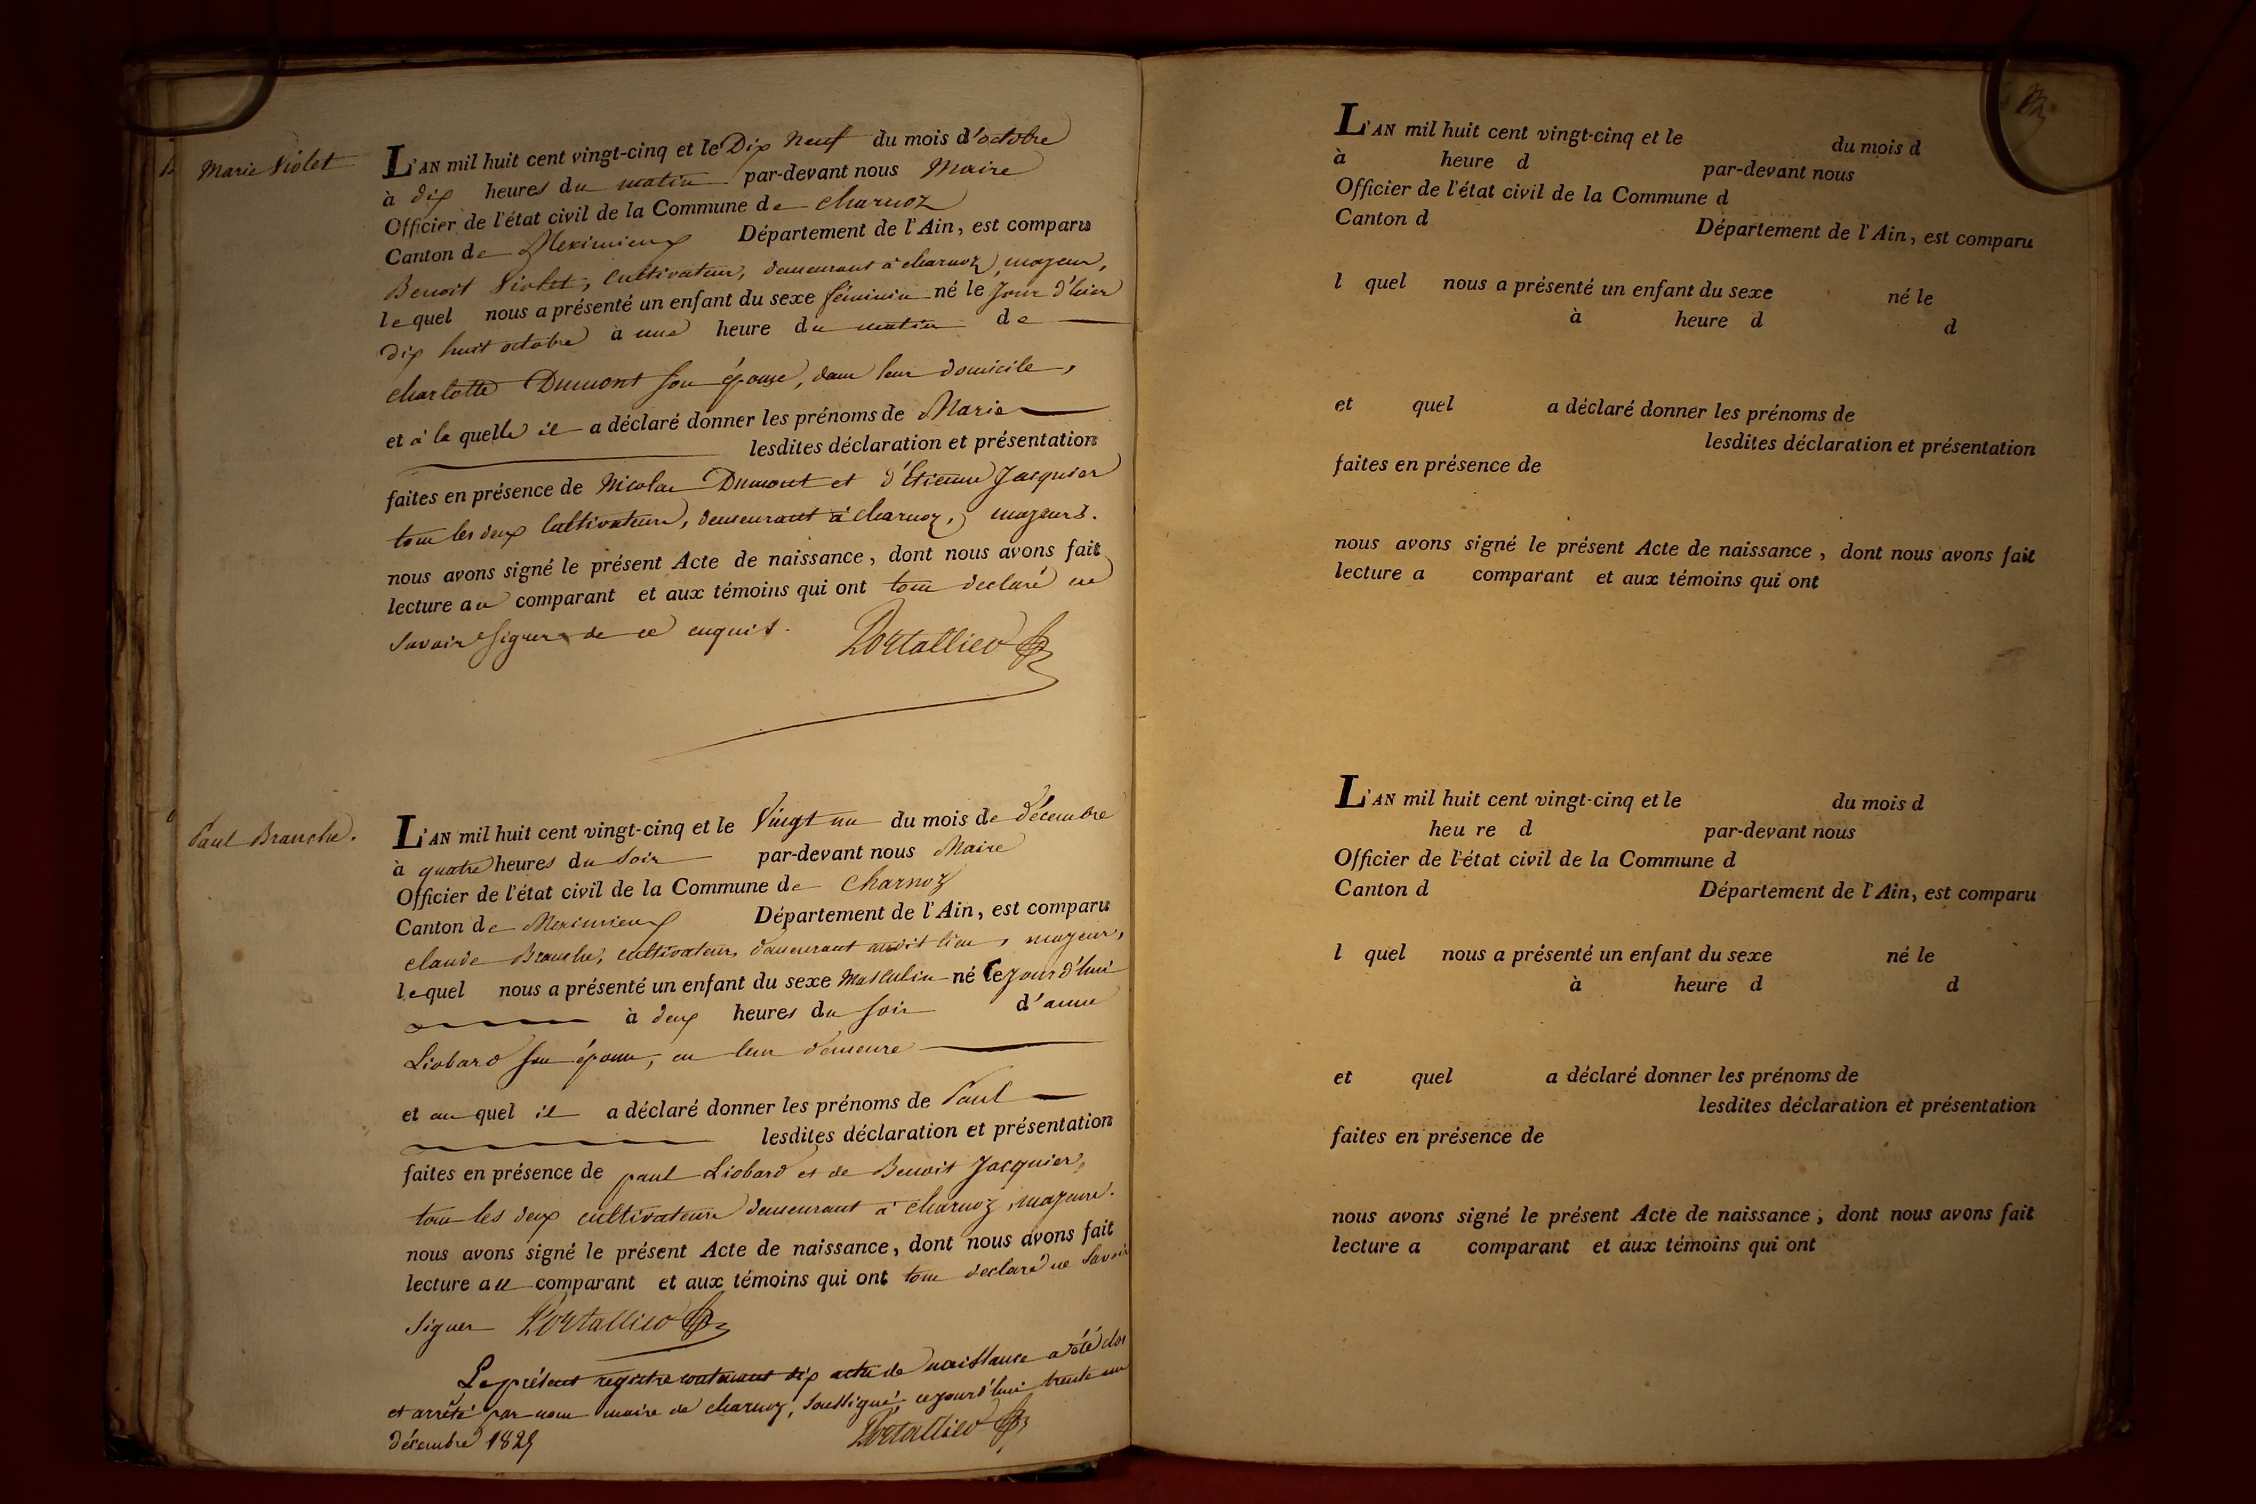 Marie Violet
L'AN mil huit cent vingt-cinq et le Dix Neuf du mois d'octobre
à dix heures du matin par-devant nous Maire
Officier de l'état civil de la Commune de charnoz
Canton de Meximieux Département de l'Ain, est comparu
Benoit Violet, cultivateur, demeurant à charnoz, majeur,
lequel nous a présenté un enfant du sexe féminin né le jour d'hier
dix huit octobre à une heure du matin de
charlotte Dumont son épouse, dans leur domicile,
et à la quelle il a déclaré donner les prénoms de Marie
lesdites déclaration et présentation
faites en présence de Nicolas Dumont et d'Etienne Jacquier
tous les deux Cultivateurs, demeurant à charnoz, majeurs.
nous avons signé le présent Acte de naissance, dont nous avons fait
lecture au comparant et aux témoins qui ont tous declaré ne
savoir signer de ce enquis.
Portallier
Paul Branche.
L'AN mil huit cent vingt-cinq et le Vingt un du mois de décembre
à quatre heures du soir par-devant nous Maire
Officier de l'état civil de la Commune de Charnoz
Canton de Meximieux Département de l'Ain, est comparu
claude Branche, cultivateur, demeurant audit lieu, majeur,
lequel nous a présenté un enfant du sexe Masculin né cejourd'hui
à deux heures du soir d'anne
Liobard son épouse, en leur demeure
et au quel il a déclaré donner les prénoms de Paul
lesdites déclaration et présentation
faites en présence de paul Liobard et de Benoit Jacquier,
tous les deux cultivateurs demeurant à charnoz, majeurs.
nous avons signé le présent Acte de naissance, dont nous avons fait
lecture au comparant et aux témoins qui ont tous declaré ne savoir
signer Portallier
Le présent registre contenant dix actes de naissance a été clos
et arrêté par nous maire de charnoz, soussigné, cejourd'hui trente un
décembre 1825 Portallier
L'AN mil huit cent vingt-cinq et le du mois d
à heure d par-devant nous
Officier de l'état civil de la Commune d
Canton d Département de l'Ain, est comparu
l quel nous a présenté un enfant du sexe né le
à heure d d
et quel a déclaré donner les prénoms de
lesdites déclaration et présentation
faites en présence de
nous avons signé le présent Acte de naissance, dont nous avons fait
lecture a comparant et aux témoins qui ont
L'AN mil huit cent vingt-cinq et le du mois d
heu re d par-devant nous
Officier de l'état civil de la Commune d
Canton d Département de l'Ain, est comparu
l quel nous a présenté un enfant du sexe né le
à heure d d
et quel a déclaré donner les prénoms de
lesdites déclaration et présentation
faites en présence de
nous avons signé le présent Acte de naissance, dont nous avons fait
lecture a comparant et aux témoins qui ont